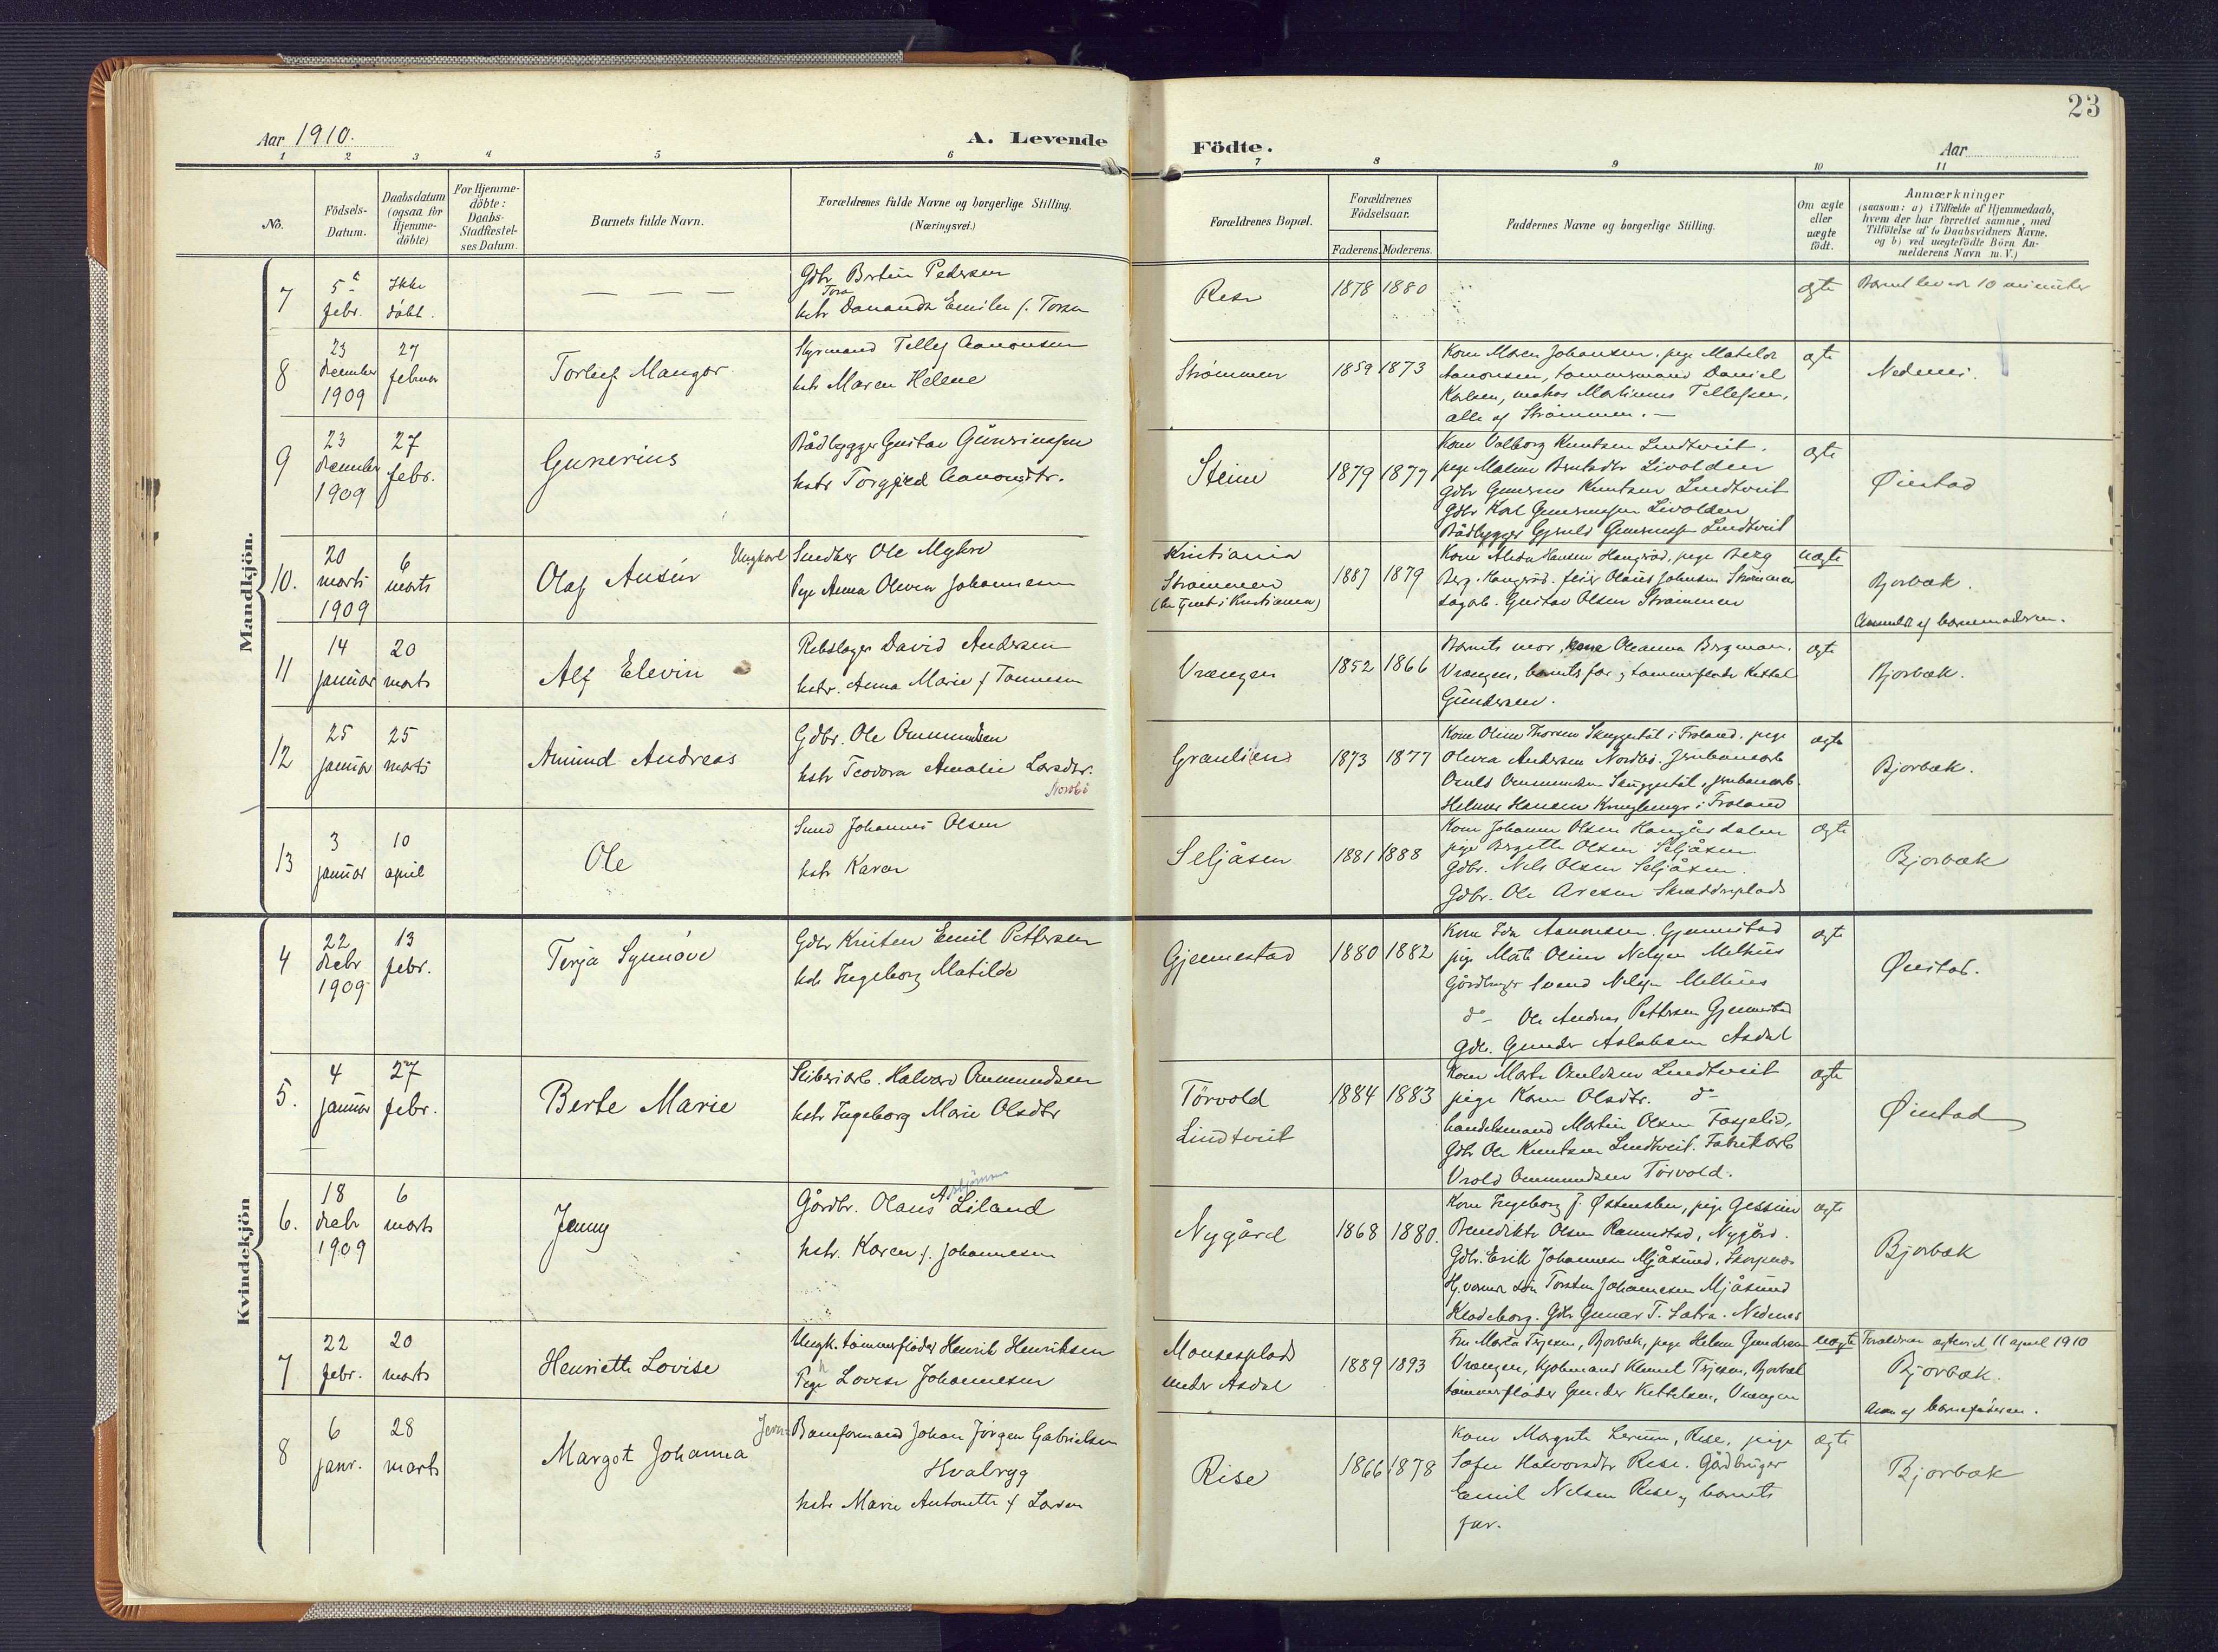 23
Aar 1910.
A. Levende
Födte.
Aar
1 2 3 4 5 6 7 8 9 10 11
No.
Födsels-
Datum.
Daabsdatum
(ogsaa for
Hjemme-
döbte)
For Hjemme-
döbte:
Daabs-
Stadfæstel-
ses Datum.
Barnets fulde Navn.
Forældrenes fulde Navne og borgerlige Stilling.
(Næringsvei.)
Forældrenes Bopæl.
Forældrenes
Födselsaar.
Faderens. Moderens.
Faddernes Navne og borgerlige Stilling.
Om ægte
eller
uægte
födt.
Anmærkninger
(saasom: a) i Tilfælde af Hjemmedaab,
hvem der har forrettet samme, med
Tilföielse af to Daabsvidners Navne,
og b) ved uægtefödte Börn An-
melderens Navn m. V.)
Mandkjön.
7
5
febr.
Ikke
döbt.
— — —
Gdbr Pedersen
Tora
hstr Emilie f.
1878 1880
ægte
Barnet levede 10 minutter
8
23
december
1909
27
februar
Torleif Mangor
Styrmand Tellef Aanonsen
hstr Maren Helene
Strömmen
1859 1873
Kone Maren Johansen, pige Matilde
Aanonsen, tømmermand Daniel
Karlsen, matros Martinius Tellefsen,
alle af Strömmen. —
ægte
Nedenes.
9
23
december
1909
27
febr.
Gunerius
Bådbygger Gustav
hstr Torgjerd Aanonsdtr.
1879 1877
Kone Valborg Knutsen Lindtveit,
pige Livolden
Gdbr Knutsen Lindtveit
Gdbr Karl Livolden
Bådbygger Lindtveit
ægte
Øiestad
10.
20
marts
1909
6
marts
Olaf
Ungkarl Snedker Ole Myhre
Pige Anna Olevia Johannesen
Kristiania
Strømmen
1887 1879
Kone Hansen Hangrød, pige Berg
Berg. Olaus Johnsen Strømmen
Gustav Olsen Strømmen
uægte
Bjorbæk.
Anmeldt af barnemoderen.
11
14
januar
20
marts
Alf Elevin
Rebslager David Andersen
hstr. Anna Marie f Tønnesen
Vrængen
1852 1866
Barnets mor, kone Oleanna Bergman,
Vrængen, barnets far, tømmerfløder Kettel
Gundersen.
ægte
Bjorbæk.
12
25
januar
25
marts
Amund Andreas
Gdbr. Ole Ommundsen
hstr Teodora Amalie Larsdtr.
Nordbö
Granlien
1873 1877
Kone Oline Thorsen i Froland, pige
Olivia Andersen Nordbö. Jernbanearb
Ommundsen jernbanearb.
Helmer Hansen i Froland
ægte
Bjorbæk.
13
3
januar
10
april
Ole
Smed Johannes Olsen
hstr Karen
Seljåsen
1881 1888
Kone Johanne Olsen
pige Birgitte Olsen Seljåsen
Gdbr. Nels Olsen Seljåsen.
Gdbr. Ole Aresen Skredderplads
ægte
Bjorbæk
Kvindekjön
4
22
decbr
1909
13
febr.
Terja Synnöve
Gdbr Kristen Emil Pettersen
hstr Ingeborg Matilde
Gjennestad
1880 1882
Kone Ida Aanonsen Gjennestad
pige Oline
Gårdbruger Svend
do— Ole Andreas Pettersen Gjennestad
Gdbr. Gunder Aslaksen Asdal
ægte
Øiestad.
5.
4
januar
27
febr.
Berte Marie
Sliberiarb. Halvard Ommundsen
hstr Ingeborg Marie Olsdtr
Törvold
Lindtveit
1884 1883
Kone Marte Lindtveit
pige Karen Olsdtr. do—
handelsmand Martin Olsen
Gdbr Ole Knutsen Lindtveit. Fabrikarb
Ommundsen Törvold.
ægte
Øiestad
6.
18
decbr
1909
6
marts
Jenny
Gårdbr. Olaus A Liland
hstr. Karen f. Johannesen
Nygård
1868 1880.
Kone Ingeborg J. Østensben, pige Gessine
Benedikte Olsen Nygård.
Gdbr. Erik Johannesen Mjåsund,
Torsten Johannesen Mjåsund
Klodeborg. Gdbr Gunnar T. Nedenes
ægte
Bjorbæk
7
22
febr.
20
marts
Henriette Lovise
Ungk. tømmerfløder Henrik Henriksen
Pige Lovise Johannesen
Monsesplads
under Asdal
1889 1893
Fru Marta Terjesen, Bjorbæk, pige Helene Gundersen
Vrængen, kjøbmand Terjesen, Bjorbæk
tømmerfløder Gunder Kettelsen, Vrængen
uægte
Forældrene ægteviet 11 april 1910
Bjorbæk.
Anm af barnefaderen.
8
6
janr.
28
marts
Margot Johanna
Jern= Baneformand Johan Jörgen Gabrielsen
Hvalrygg
hstr Marie Antonette f Larsen
Rise
1866 1878
Kone Margrete Rise, pige
Sofie Halvorsdtr Rise. Gårdbruger
Emil Nelsen Rise, barnets
far.
ægte
Bjorbæk